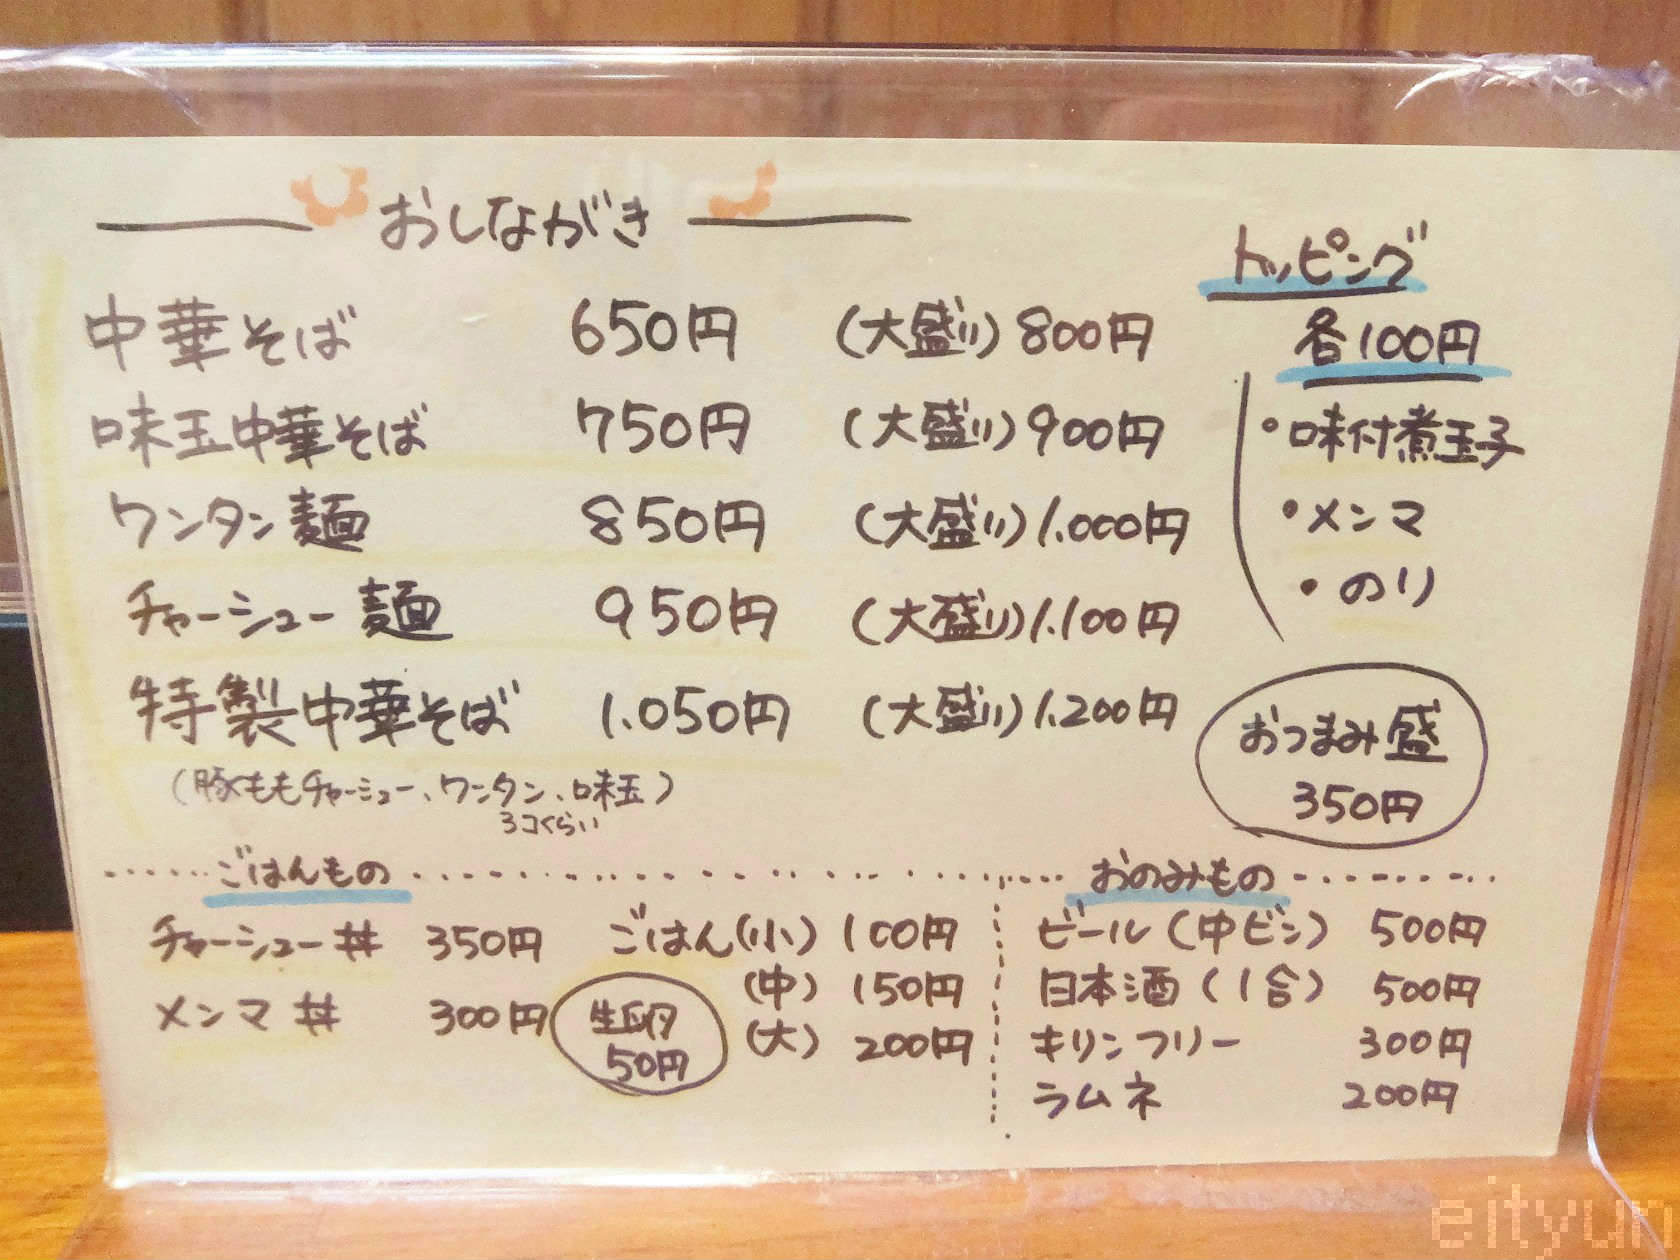 おしながき
中華そば 650円 (大盛り) 800円
味玉中華そば 750円 (大盛り) 900円
ワンタン麺 850円 (大盛り) 1.000円
チャーシュー麺 950円 (大盛り) 1.100円
特製中華そば 1.050円 (大盛り) 1.200円
(豚ももチャーシュー、ワンタン、味玉)
3コくらい
トッピング
各100円
・味付煮玉子
・メンマ
・のり
おつまみ盛
350円
ごはんもの
チャーシュー丼 350円
メンマ丼 300円
ごはん(小) 100円
(中) 150円
(大) 200円
生卵
50円
おのみもの
ビール(中ビン) 500円
日本酒(1合) 500円
キリンフリー 300円
ラムネ 200円
eityun